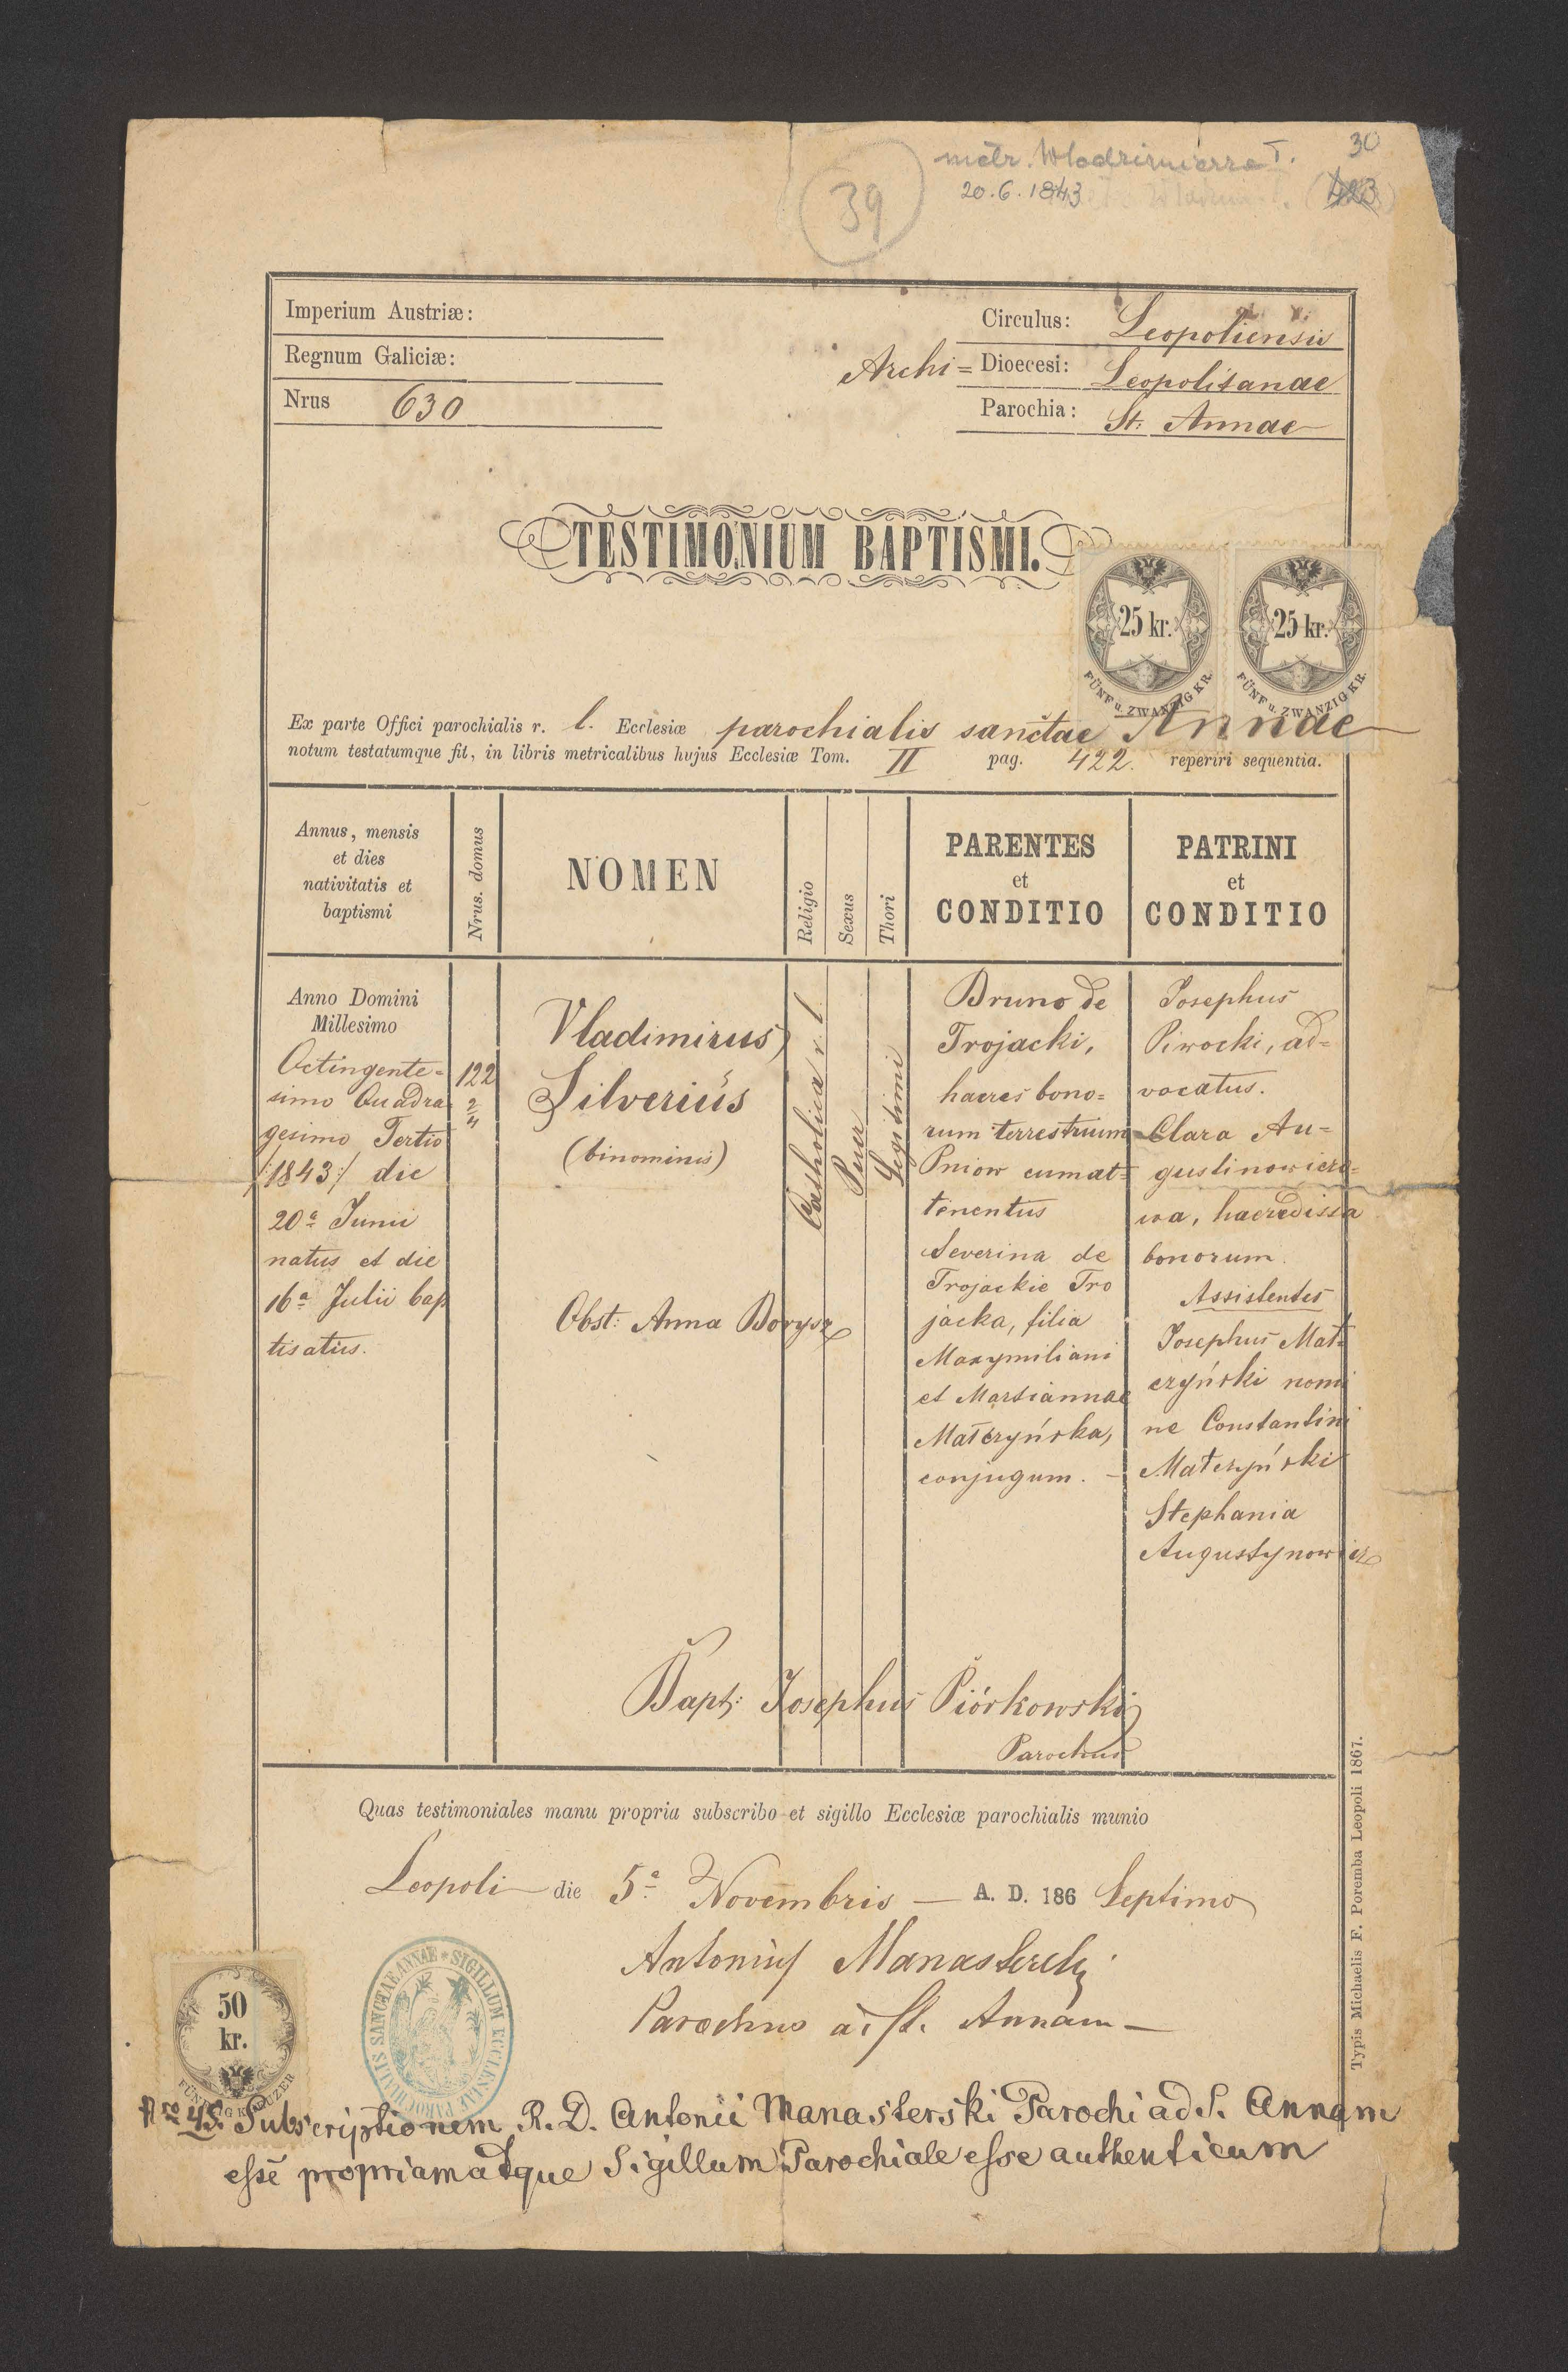 39
metr. Włodzimierza T.
20.6.1843
30
Imperium Austriæ:
Regnum Galiciæ:
Nrus 630
Circulus: Leopoliensis
Archi= Dioecesi: Leopolitanae
Parochia: St: Annae
TESTIMONIUM BAPTISMI.
25 kr.
FÜNF u. ZWANZIG KR.
25 kr.
FÜNF u. ZWANZIG KR.
Ex parte Offici parochialis r. l. Ecclesiæ parochialis sanctae Annae
notum testatumque fit, in libris metricalibus hujus Ecclesiæ Tom. II pag. 422. reperiri sequentia.
Annus, mensis
et dies
nativitatis et
baptismi
Nrus. domus
NOMEN
Religio
Sexus
Thori
PARENTES
et
CONDITIO
PATRINI
et
CONDITIO
Anno Domini
Millesimo
Octingente=
simo Quadra
gesimo Tertio
/:1843:/ die
20a Junii
natus et die
16a Julii bap
tisatus.
122
2/4
Vladimirus
Silverius
(binominis)
Obst: Anna Borysz
Catholica r. l.
Puer
Legitimi
Bruno de
Trojacki,
haeres bono=
rum terrestrium
Pniow cum at=
tinentus
Severina de
Trojackie Tro
jacka, filia
Maxymiliani
et Martiannae
Matczyńska,
conjugum. –
Josephus
Piwocki, ad=
vocatus.
Clara Au=
gustinowiczo=
wa, haeredissa
bonorum.
Assistentes
Josephus Mat=
czyński nomi
ne Constantini
Matczyński
Stephania
Augustynowicz
Bapt: Josephus Piórkowski
Parochus
Quas testimoniales manu propria subscribo et sigillo Ecclesiæ parochialis munio
Leopoli die 5a Novembris — A. D. 186 Septimo
Antonius Manasterski
Parochus ad St. Annam —
Typis Michaelis F. Poremba Leopoli 1867.
50
kr.
FÜNFZIG KREUZER
SIGILLUM ECCLESIAE PAROCHIALIS SANCTAE ANNAE
Nro 45. Subscriptionem R. D. Antonii Manasterski Parochi ad S. Annam
esse propriam atque Sigillum Parochiale esse authenticum